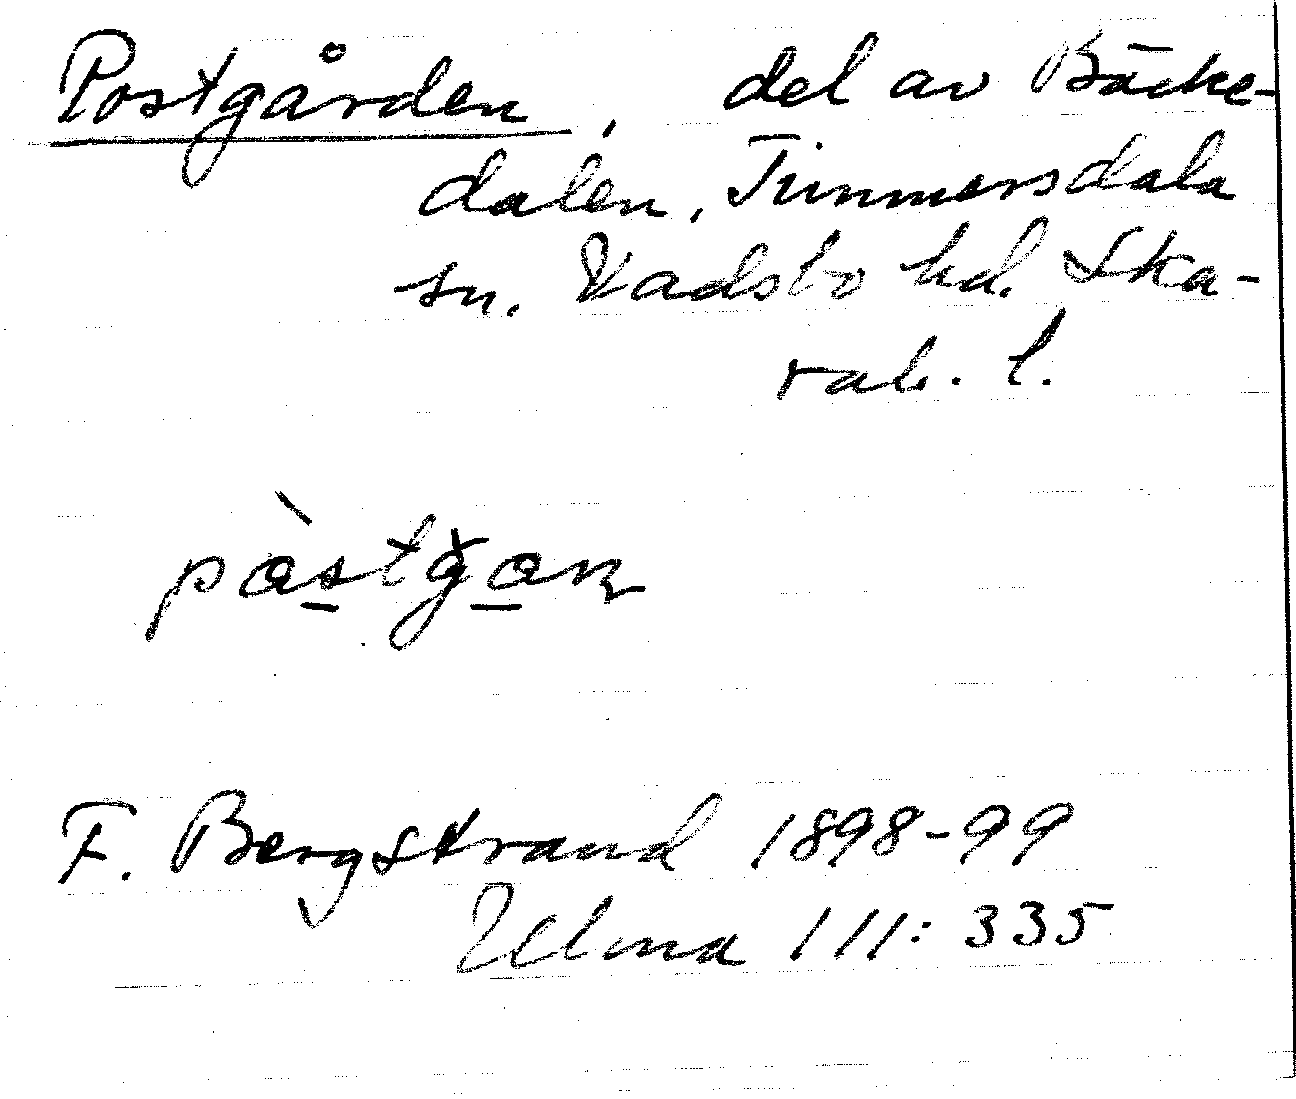 Postgården, del av Bäcke-
dalen, Timmersdala
sn. Vadsbo hd. Ska-
rab. l.
pòstgan
F. Bergstrand 1898-99
Ulma 111:335